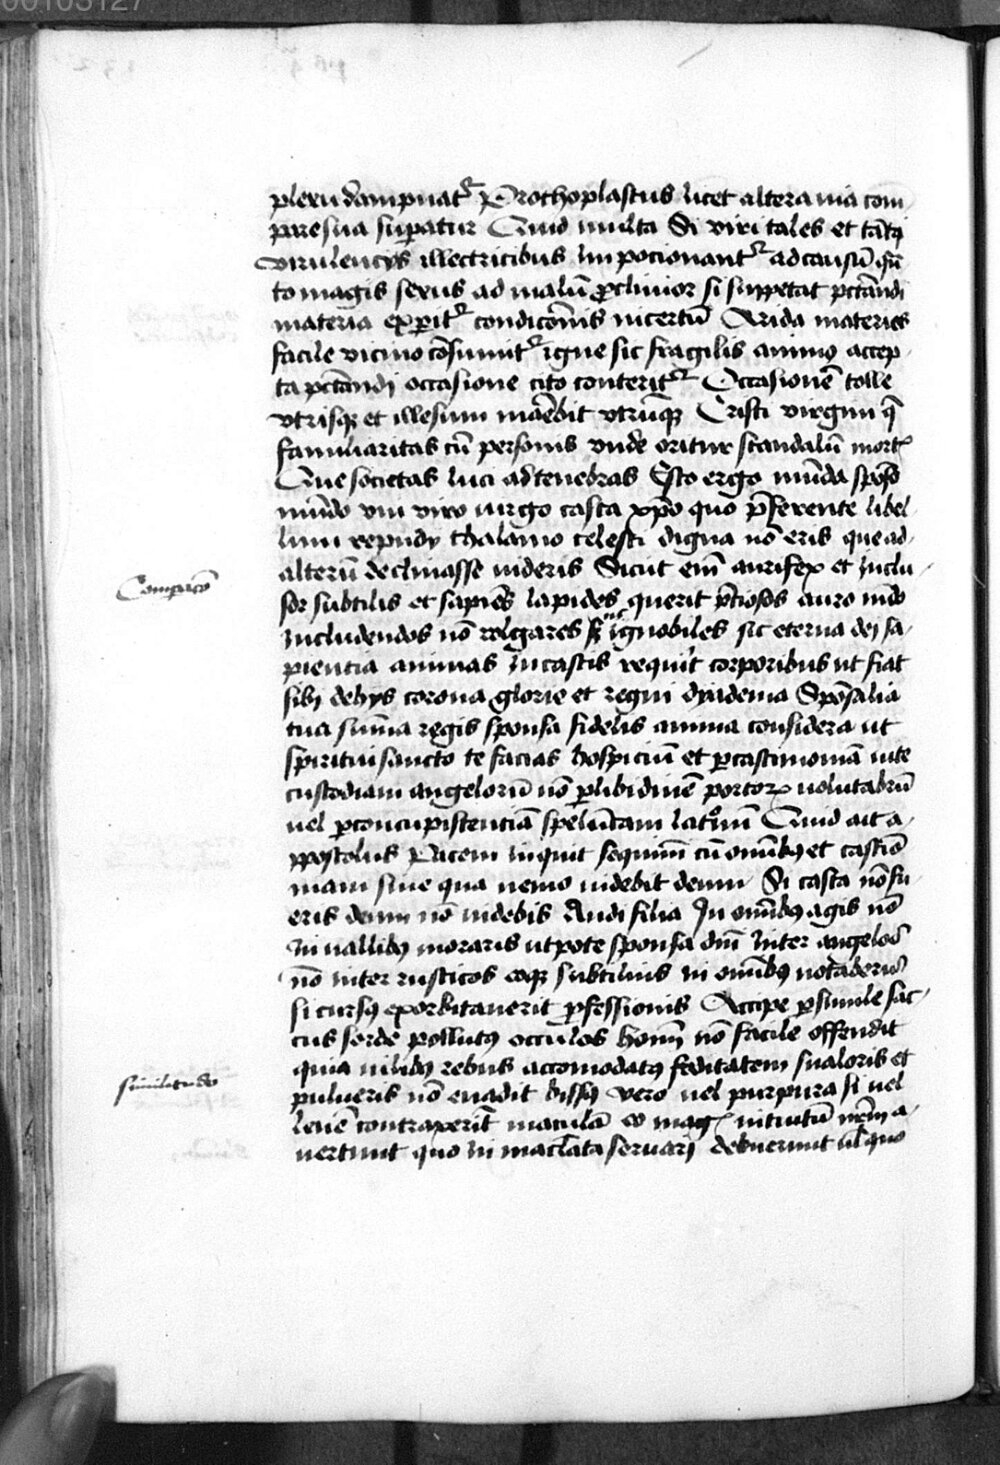 plexu dampnatᷣ Prothoplastus licet altera via com
pare sua suꝑatur Quid multa Si viri tales et tāti
virulencijs illectricibus impocionantᷣ ad casū quā
to magis sexus ad malū ꝓclinior si suppetat pctāndi
materia exꝑitᷣ condicōnis incertū Arida materies
facile vicino cōsumitᷣ igne sic fragilis animꝯ accep
ta pctāndi occasione cito conteritᷣ Occasionē tolle
vtrisqꝫ et illesum manebit vtrūqꝫ Cristi virgini q̄
familiaritas cū personis vnde oritur scandalū mort
Que societas luci ad tenebras Esto ergo mūda spōso
mūdo vni viro virgo casta xp̄o quo p̄ferente libel
lum repudij thalamo celesti digna nō eris que ad
alterū declinasse videris Sicut em̄ aurifex et inclu
Comparacō
sor subtilis et sapiēs lapides querit p̄ciosos auro
includendos nō vlgares sꝫ ignobiles sic eterna dei sa
pientia animas in castis requirit corporibus ut fiat
sibi de hijs corona glorie et regni dyadema Spōsalia
tua sūma regis sponsa fidelis anima considera ut
spiritui sancto te facias hospiciū et ꝑ castimoniā in te
custodiam angelorū nō ꝑ libidinē porcorꝝ volutabrū
vel ꝑ concupiscentiā spelūcam latronū Quid ait a
ppostolus Pacem inquit sequimini cū omībꝯ et castio
niam sine qua nemo videbit deum Si casta nō fu
eris deum nō videbis Audi filia In omībꝯ agis nō
in vallibꝯ moraris utpote sponsa dn̄i inter angelos
nō inter rusticos eoqꝫ subtilius in omībꝯ notaberis
si cursꝯ exorbitauerit ꝓfessionis Accipe ꝑ simile sac
cus sorde pollutꝯ occulos homīn nō facile offendit
quia vilibꝯ rebus accomodatꝯ feditatem squaloris et
Similitudo
pulueris nō euadit bissꝯ vero vel purpura si vel
leuē contraxerit maculā eo magꝭ intuitū a
uertunt quo inmaculata seruari debuerunt vel quo